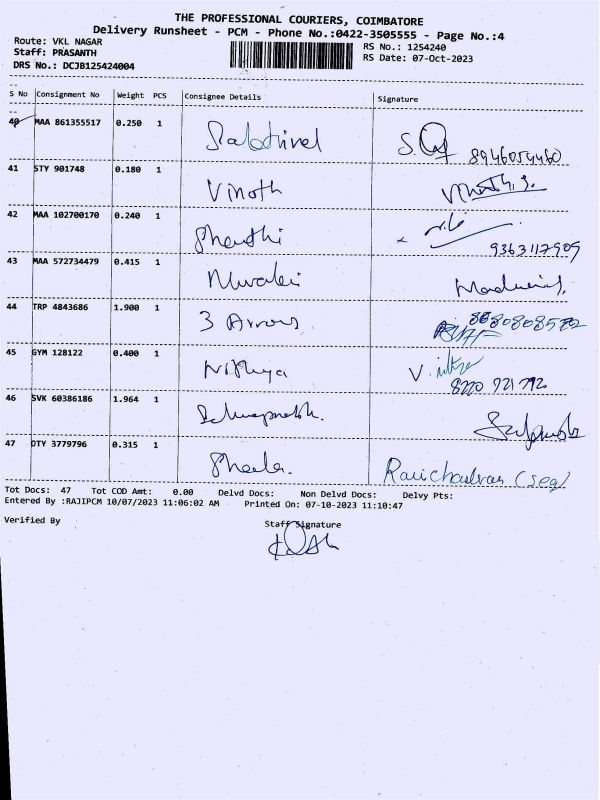 THE PROFESSIONAL COURIERS, COIMBATORE
Delivery Runsheet - PCM - Phone No.:0422-3505555 - Page No.:4
Route: VKL NAGAR
RS No.: 1254240
Staff: PRASANTH
RS Date: 07-Oct-2023
DRS No.: DCJB125424004
S No Consignment No Weight PCS Consignee Details Signature
40 MAA 861355517 0.250 1
41 STY 901748 0.180 1 Vinoth
42 MAA 102700170 0.240 1 Shanthi 9363117909
43 MAA 572734479 0.415 1
44 TRP 4843686 1.900 1 3 Arrows
45 GYM 128122 0.400 1 Nithya
46 SVK 60386186 1.964 1
47 OTY 3779796 0.315 1 Sheela.
Tot Docs: 47 Tot COD Amt: 0.00 Delvd Docs: Non Delvd Docs: Delvy Pts:
Entered By :RAJIPCM 10/07/2023 11:06:02 AM Printed On: 07-10-2023 11:10:47
Verified By Staff Signature